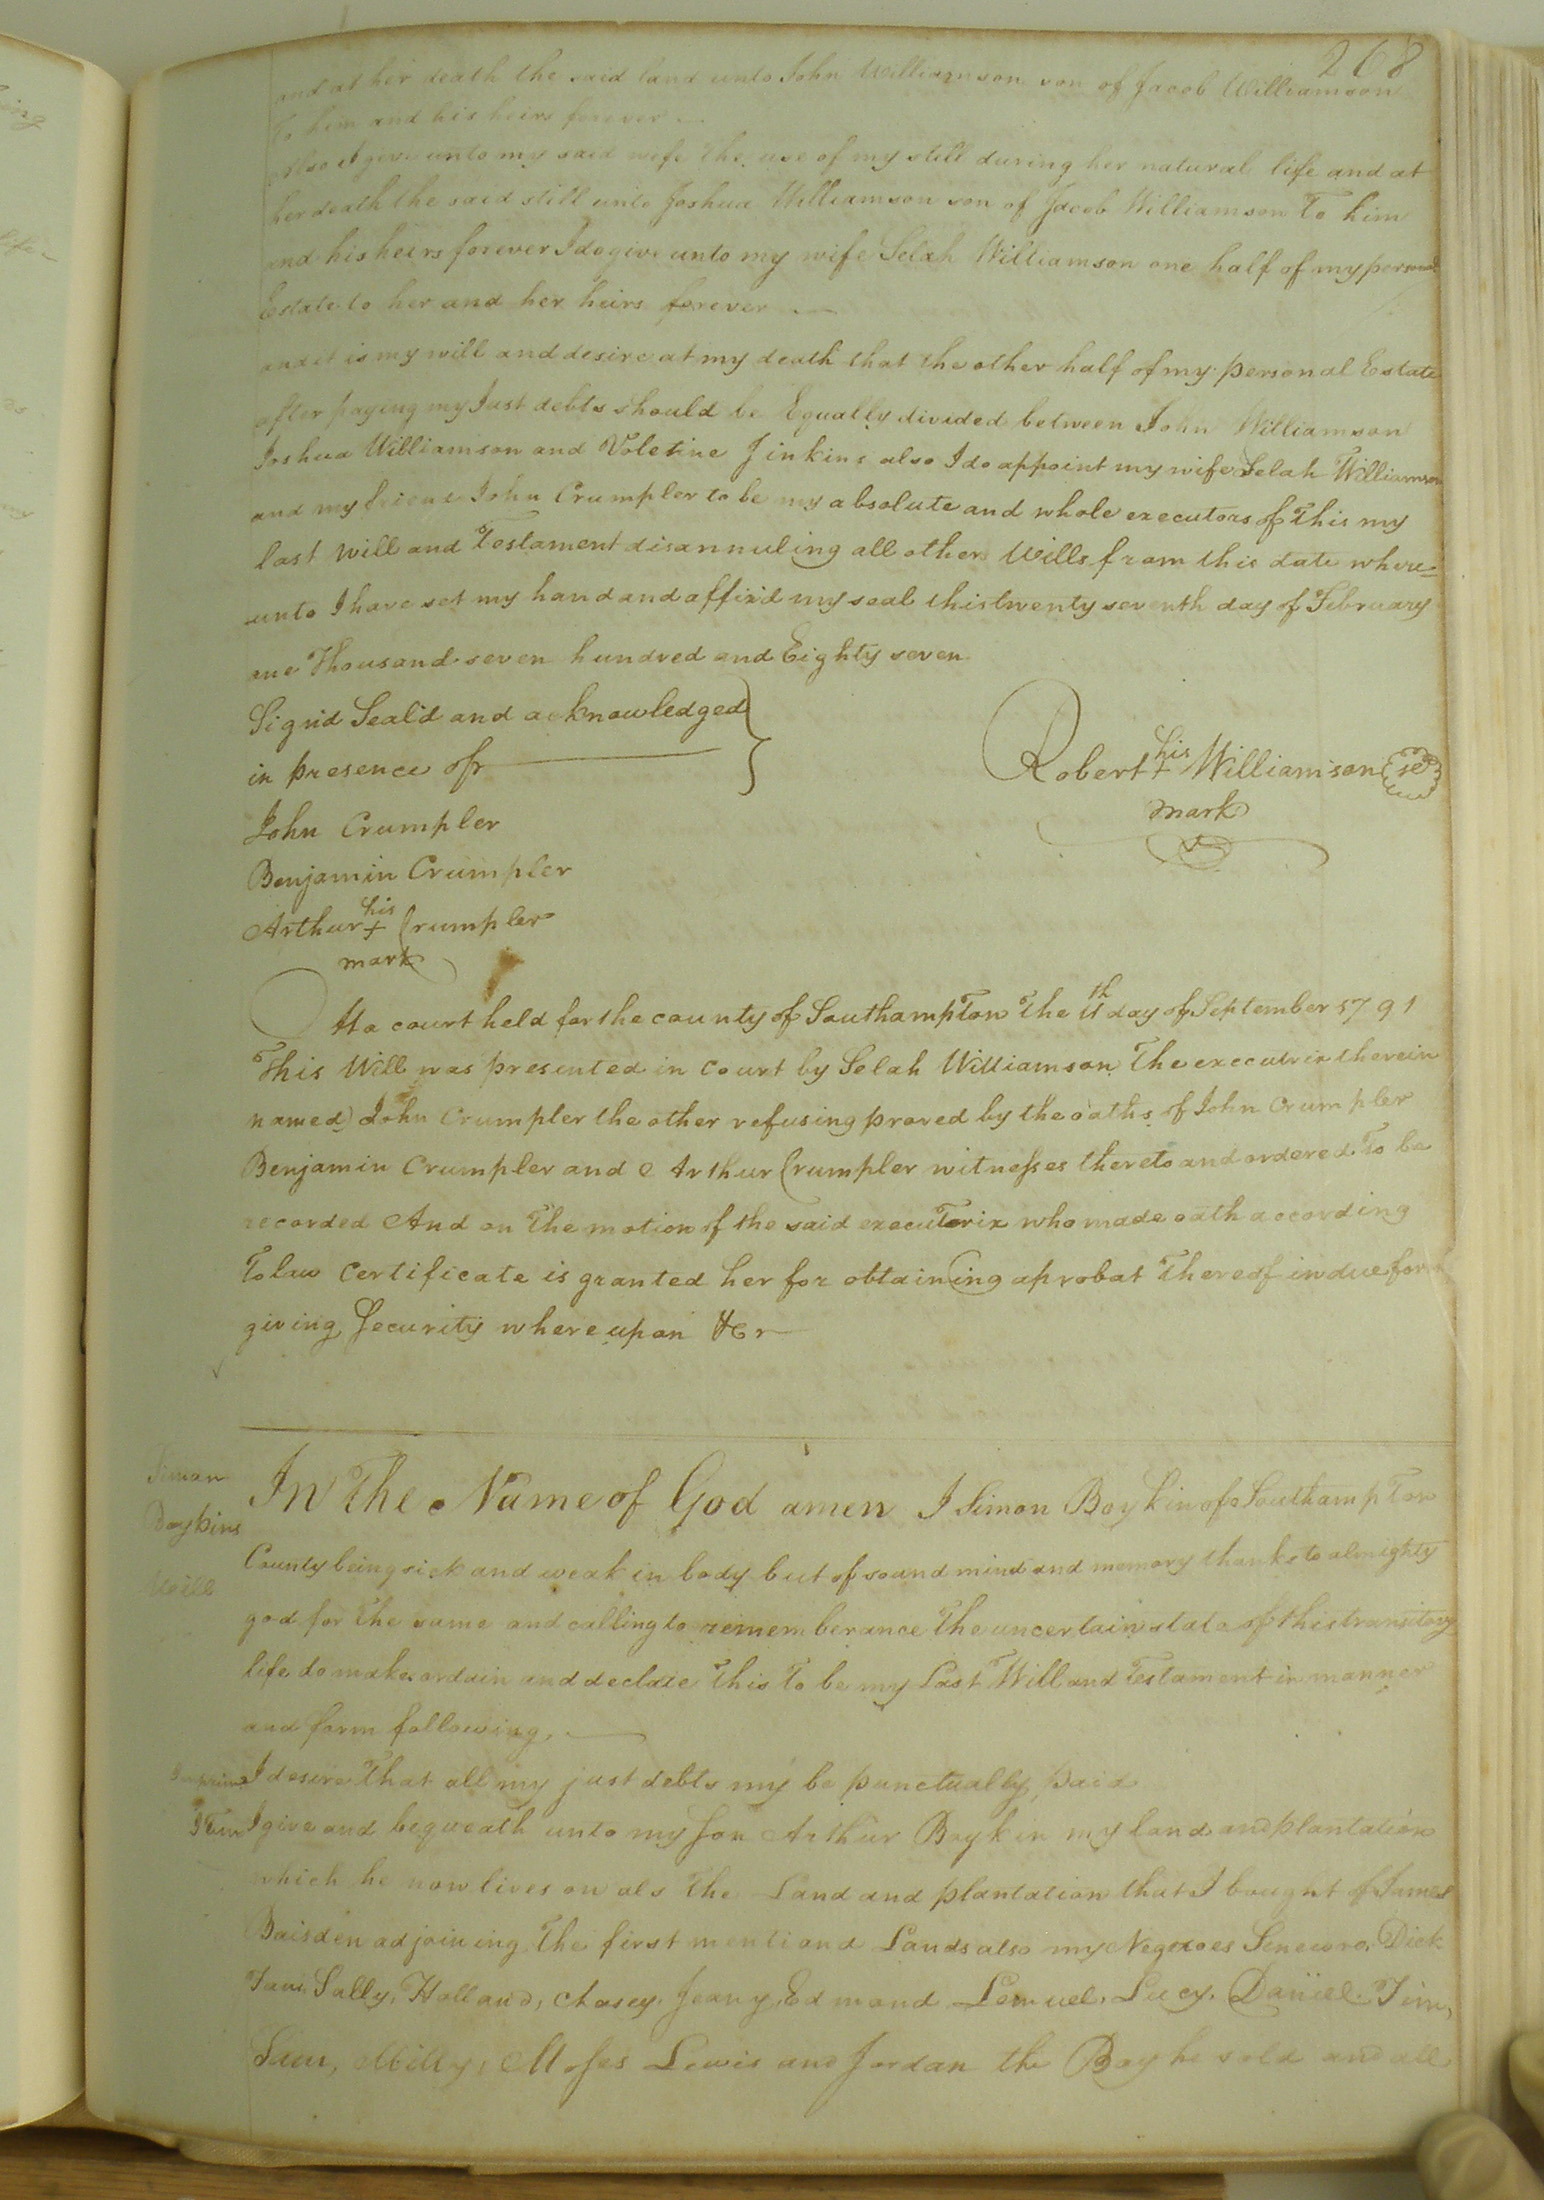 268
and at her death the said land unto John Williamson son of Jacob Williamson
To him and his heirs forever —
Also I give unto my said wife the use of my still during her natural life and at
her death the said still unto Joshua Williamson son of Jacob Williamson To him
and his heirs forever I do give unto my wife Selah Williamson one half of my personal
Estate to her and her heirs forever —
and it is my will and desire at my death that the other half of my personal Estate
after paying my Just debts should be Equally divided between John Williamson
Joshua Williamson and Voletine Jinkins also I do appoint my wife Selah Williamson
and my friend John Crumpler to be my absolute and whole executors of This my
last Will and Testament disannuling all other Wills from this date where=
unto I have set my hand and affix'd my seal this twenty seventh day of February
one Thousand seven hundred and Eighty seven
Sign'd Seal'd and acknowledged
in presence of
Robert his + Williamson
mark
John Crumpler
Benjamin Crumpler
Arthur his + Crumpler
mark
At a court held for the county of Southampton The th day of September 1791
This Will was presented in Court by Selah Williamson The executrix therein
named John Crumpler the other refusing proved by the oaths of John Crumpler
Benjamin Crumpler and Arthur Crumpler witnesses thereto and ordered To be
recorded And on The motion of the said executorix who made oath according
To law Certificate is granted her for obtaining a probat Thereof in due form
giving Security where upon &c
Simon
Boykins
Will
In The Name of God amen I Simon Boykin of Southampton
County being sick and weak in body but of sound mind and memory thanks to almighty
god for The same and calling to rememberance The uncertain state of this transitory
life do make ordain and declare This To be my Last Will and Testament in manner
and form following, —
Imprimis I desire That all my just debts my be punctually paid
Item I give and bequeath unto my Son Arthur Boykin my land and plantation
which he now lives on als The Land and plantation that I bought of James
Baisden adjoining The first mentiond Lands also my Negroes Dick
Sally, Holland, Chasey, Jeany, Edmond Lemuel, Lucy, Daniel, Jim,
Sam, Milly, Moses Lewis and Jordan the Boy he sold and all